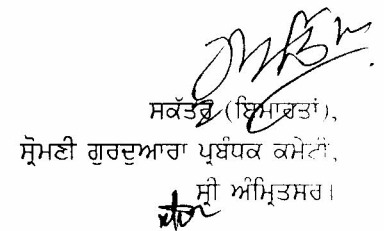 ਸਕੱਤਰ (ਇਮਾਰਤਾਂ),
ਸ਼੍ਰੋਮਣੀ ਗੁਰਦੁਆਰਾ ਪ੍ਰਬੰਧਕ ਕਮੇਟੀ,
ਸ੍ਰੀ ਅੰਮ੍ਰਿਤਸਰ।